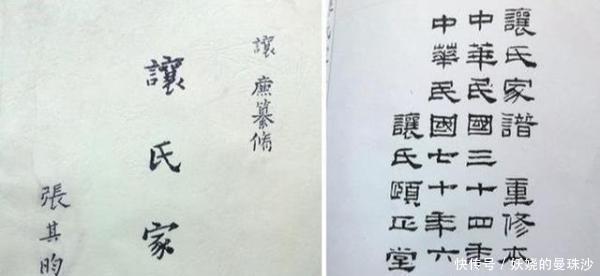 讓 廡纂脩
讓氏家
張其昀
讓氏家譜 重修本
中華民國三十四年
中華民國七十年六
讓氏頤正堂
快传号/妖娆的曼珠沙